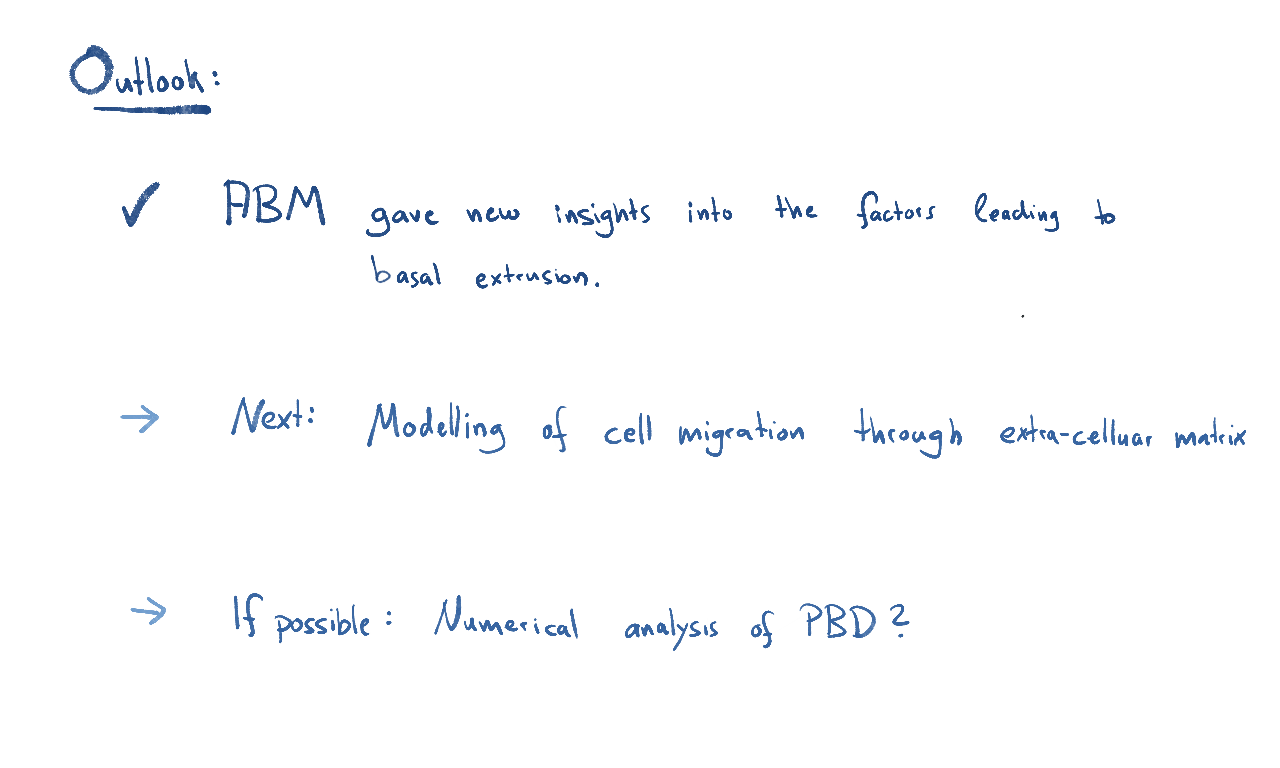 Outlook:
✓ ABM gave new insights into the factors leading to
basal extrusion.
→ Next: Modelling of cell migration through extra-celluar matrix
→ If possible: Numerical analysis of PBD?